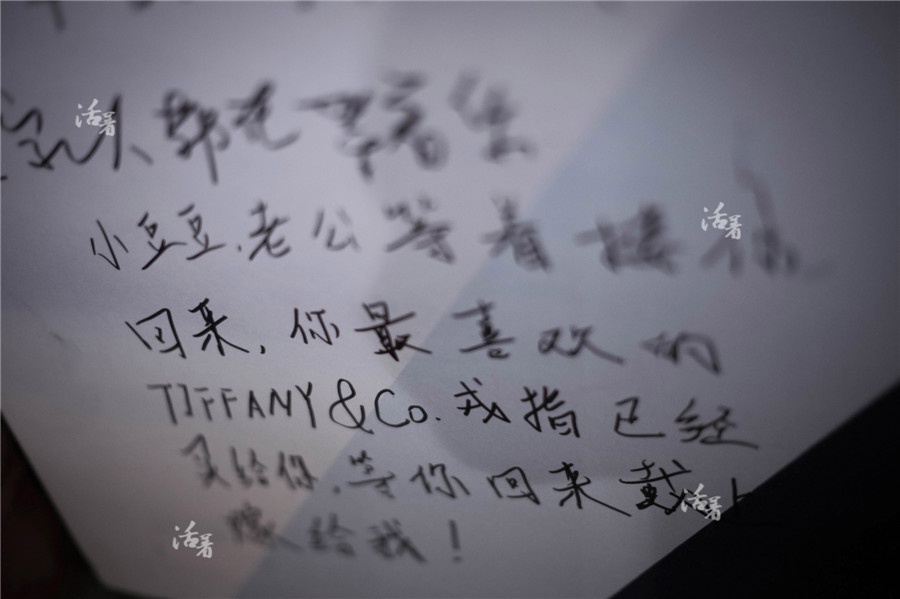 小豆豆,老公等着接你
回来,你最喜欢的
TIFFANY&Co.戒指已经
买给你,等你回来戴上
嫁给我!
活着
活着
活着
活着